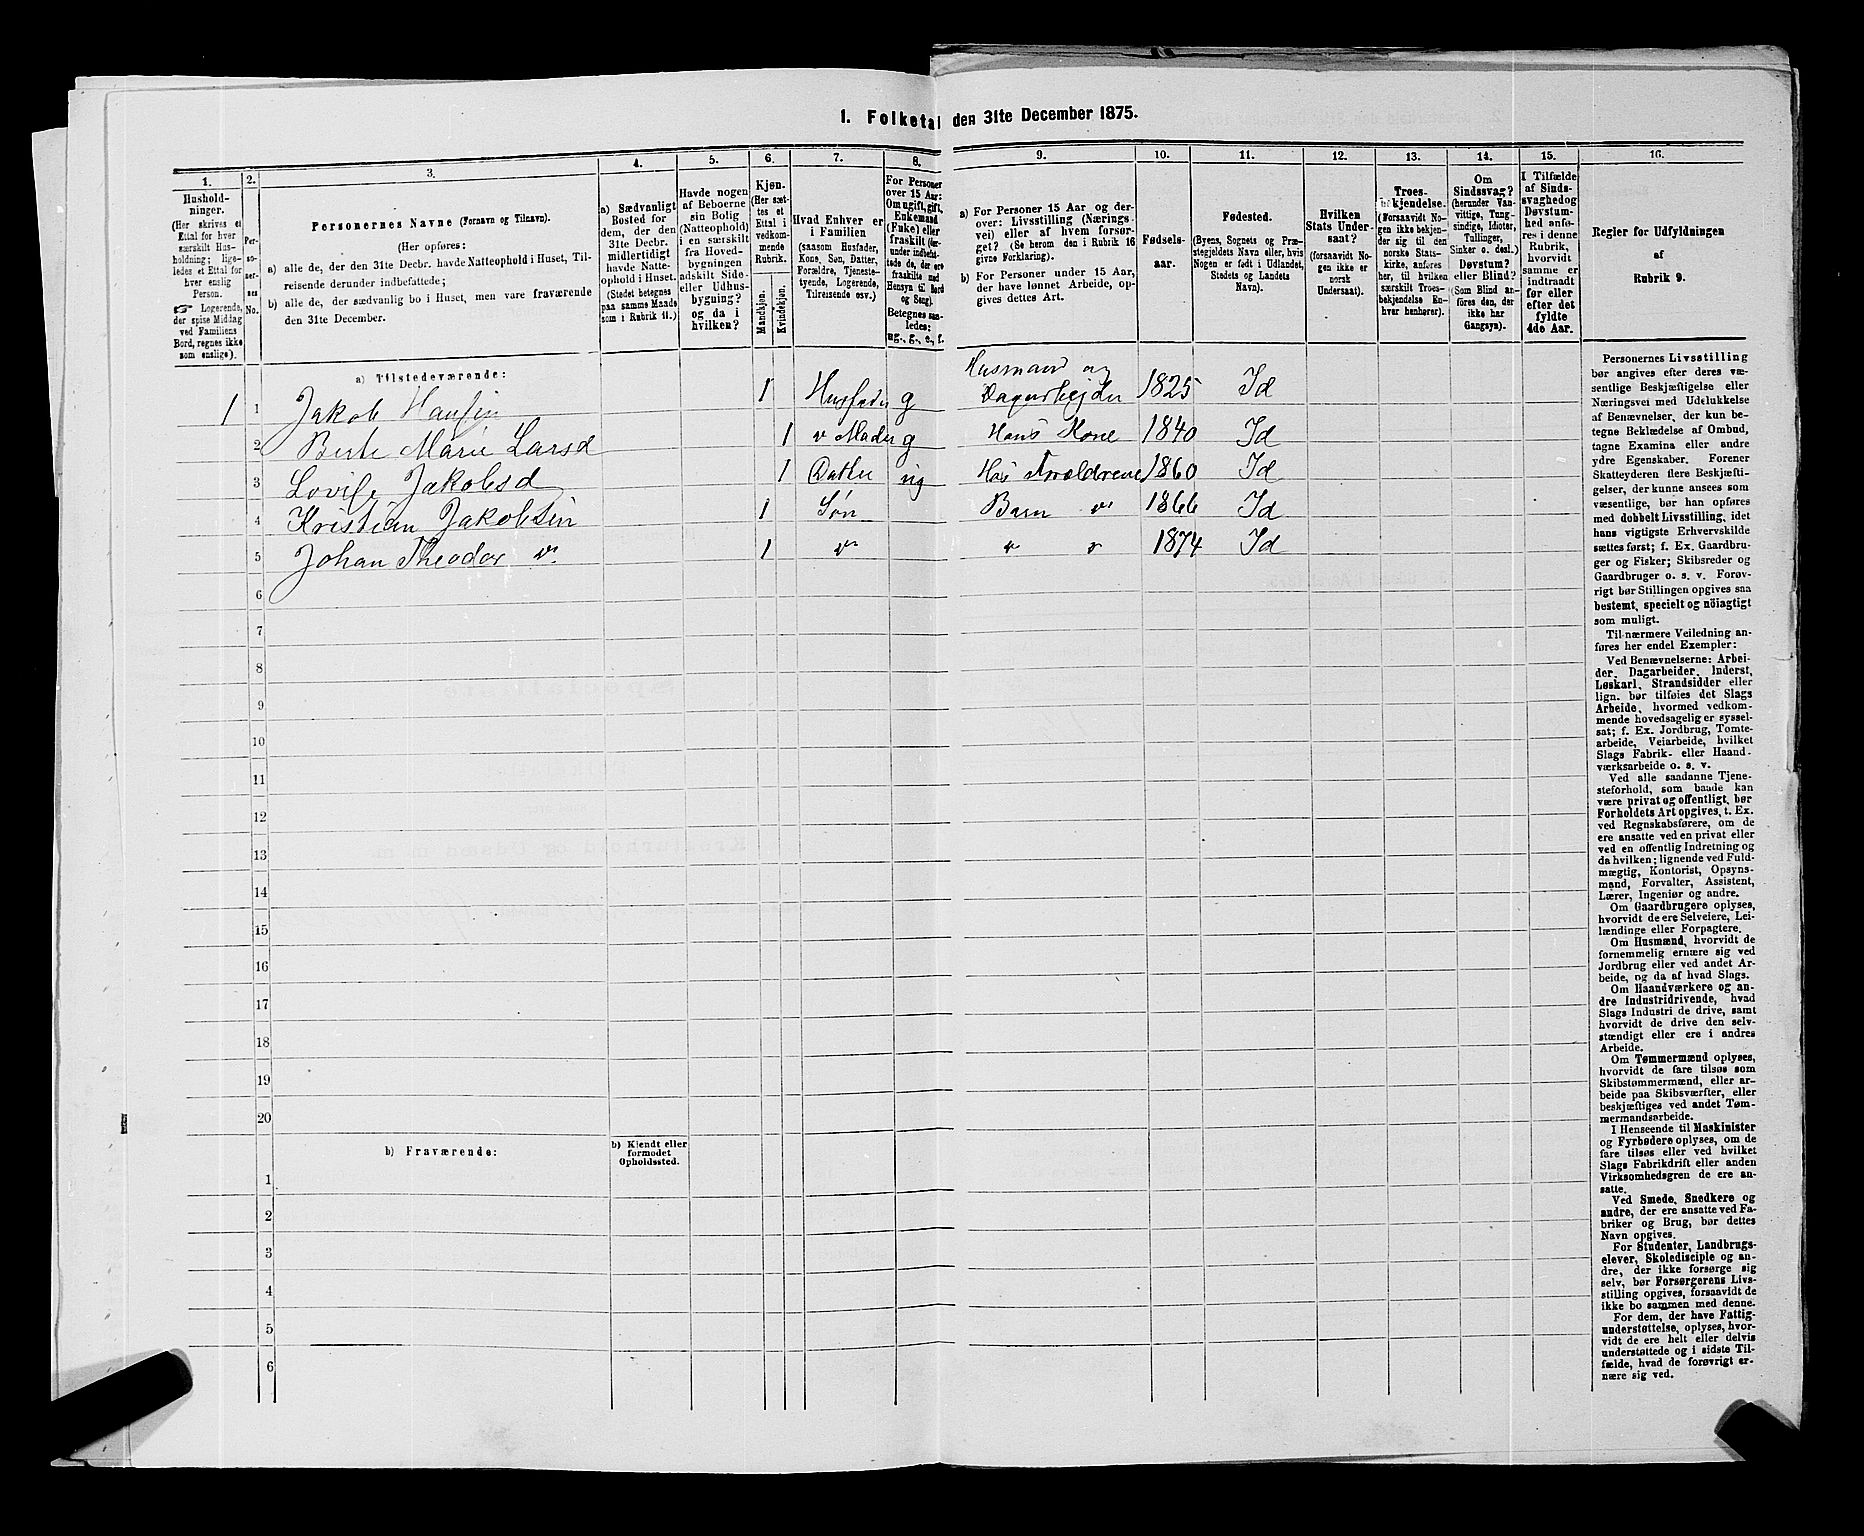 1. Folketal den 31te December 1875.
1.
Hushold-
ninger.
(Her skrives et
Ettal for hver
særskilt Hus-
holdning; lige-
ledes et Ettal for
hver enslig
Person.
☞ Logerende,
der spise Middag
ved Familiens
Bord, regnes ikke
som enslige).
2.
Per-
so-
ner-
nes
No.
3.
Personernes Navne (Fornavn og Tilnavn).
(Her opføres:
a) alle de, der den 31te Decbr. havde Natteophold i Huset, Til-
reisende derunder indbefattede;
b) alle de, der sædvanlig bo i Huset, men vare fraværende
den 31te December.
4.
a) Sædvanligt
Bosted for
dem, der den
31te Decbr.
midlertidigt
havde Natte-
ophold i Huset.
(Stedet betegnes
paa samme Maade
som i Rubrik 11.)
5.
Havde nogen
af Beboerne
sin Bolig
(Natteophold)
i en særskilt
fra Hoved-
bygningen
adskilt Side-
eller Udhus-
bygning?
og da i
hvilken?
6.
Kjøn.
(Her sæt-
tes et
Ettal i
vedkom-
mende
Rubrik.
Mandkjøn.
Kvindekjøn.
7.
Hvad Enhver er
i Familien
(saasom Husfader,
Kone, Søn, Datter,
Forældre, Tjeneste-
tyende, Logerende,
Tilreisende osv.)
8.
For Personer
over 15 Aar:
Om ugift, gift,
Enkemand
(Enke) eller
fraskilt (her-
under indbefat-
tede de, der ere
fraskilte med
Hensyn til Bord
og Seng).
Betegnes saa-
ledes:
ug., g., e., f.
9.
a) For Personer 15 Aar og der-
over: Livsstilling (Nærings-
vei) eller af hvem forsør-
get? (Se herom den i Rubrik 16
givne Forklaring).
b) For Personer under 15 Aar,
der have lønnet Arbeide, op-
gives dettes Art.
10.
Fødsels-
aar.
11.
Fødested.
(Byens, Sognets og Præ-
stegjeldets Navn eller, hvis
Nogen er født i Udlandet,
Stedets og Landets
Navn).
12.
Hvilken
Stats Under-
saat?
(forsaavidt No-
gen ikke er
norsk
Undersaat).
13.
Troes-
bekjendelse.
(Forsaavidt No-
gen ikke bekjen-
der sig til den
norske Stats-
kirke, anføres
her, til hvilken
særskilt Troes-
bekjendelse En-
hver henhører).
14.
Om
Sindssvag?
(herunder Van-
vittige, Tung-
sindige, Idioter,
Tullinger,
Sinker o. desl.)
Døvstum?
eller Blind?
(Som Blind an-
føres den, der
ikke har
Gangsyn).
15.
I Tilfælde
af Sinds-
svaghed og
Døvstum-
hed anfø-
res i denne
Rubrik,
hvorvidt
samme er
indtraadt
før eller
efter det
fyldte
4de Aar.
16.
Regler for Udfyldningen
af
Rubrik 9.
a) Tilstedeværende:
1 1 Jakob Hansen 1 Husfader g Husmand og Dagarbejder 1825 Id
2 Berte Marie Larsd 1 " Moder g Hans Kone 1840 Id
3 Lovise Jakobsd 1 Datter ug Hos Forældrene 1860 Id
4 Kristian Jakobsen 1 Søn Barn " 1866 Id
5 Johan Theodor " 1 " " " 1874 Id
6
7
8
9
10
11
12
13
14
15
16
17
18
19
20
b) Fraværende:
b) Kjendt eller
formodet
Opholdssted.
1
2
3
4
5
6
Personernes Livsstilling
bør angives efter deres væ-
sentlige Beskjæftigelse eller
Næringsvei med Udelukkelse
af Benævnelser, der kun be-
tegne Beklædelse af Ombud,
tagne Examina eller andre
ydre Egenskaber. Forener
Skatteyderen flere Beskjæfti-
gelser, der kunne ansees som
væsentlige, bør han opføres
med dobbelt Livsstilling, idet
hans vigtigste Erhvervskilde
sættes først; f. Ex. Gaardbru-
ger og Fisker; Skibsreder og
Gaardbruger o. s. v. Forøv-
rigt bør Stillingen opgives saa
bestemt, specielt og nöiagtigt
som muligt.
Til nærmere Veiledning an-
føres her endel Exempler:
Ved Benævnelserne: Arbei-
der, Dagarbeider, Inderst,
Løskarl, Strandsidder eller
lign. bør tilføies det Slags
Arbeide, hvormed vedkom-
mende hovedsagelig er syssel-
sat; f. Ex. Jordbrug, Tømte-
arbeide, Veiarbeide, hvilket
Slags Fabrik- eller Haand-
værksarbeide o. s. v.
Ved alle saadanne Tjene-
steforhold, som baade kan
være privat og offentligt, bør
Forholdets Art opgives, t. Ex.
ved Regnskabsførere, om de
ere ansatte ved en privat eller
ved en offentlig Indretning og
da hvilken; lignende ved Fuld-
mægtig, Kontorist, Opsyns-
mand, Forvalter, Assistent,
Lærer, Ingeniør og andre.
Om Gaardbrugere oplyses,
hvorvidt de ere Selveiere, Lei-
lændinge eller Forpagtere.
Om Husmænd, hvorvidt de
fornemmelig ernære sig ved
Jordbrug eller ved andet Ar-
beide, og da af hvad Slags.
Om Haandværkere og an-
dre Industridrivende, hvad
Slags Industri de drive, samt
hvorvidt de drive den selv-
stændigt eller ere i andres
Arbeide.
Om Tømmermænd oplyses,
hvorvidt de fare tilsøs som
Skibstømmermænd, eller ar-
beide paa Skibsværfter, eller
beskjæftiges ved andet Tøm-
mermandsarbeide.
I Henseende til Maskinister
og Fyrbødere oplyses, om de
fare tilsøs eller ved hvilket
Slags Fabrikdrift eller anden
Virksomhedsgren de ere an-
satte.
Ved Smede, Snedkere og
andre, der ere ansatte ved Fa-
briker og Brug, bør dettes
Navn opgives.
For Studenter, Landbrugs-
elever, Skoledisciple og an-
dre, der ikke forsørge sig
selv, bør Forsørgerens Livs-
stilling opgives, forsaavidt de
ikke bo sammen med denne.
For dem, der have Fattig-
understøttelse, oplyses, hvor-
vidt de ere helt eller delvis
understøttede og i sidste Til-
fælde, hvad de forøvrigt er-
nære sig ved.